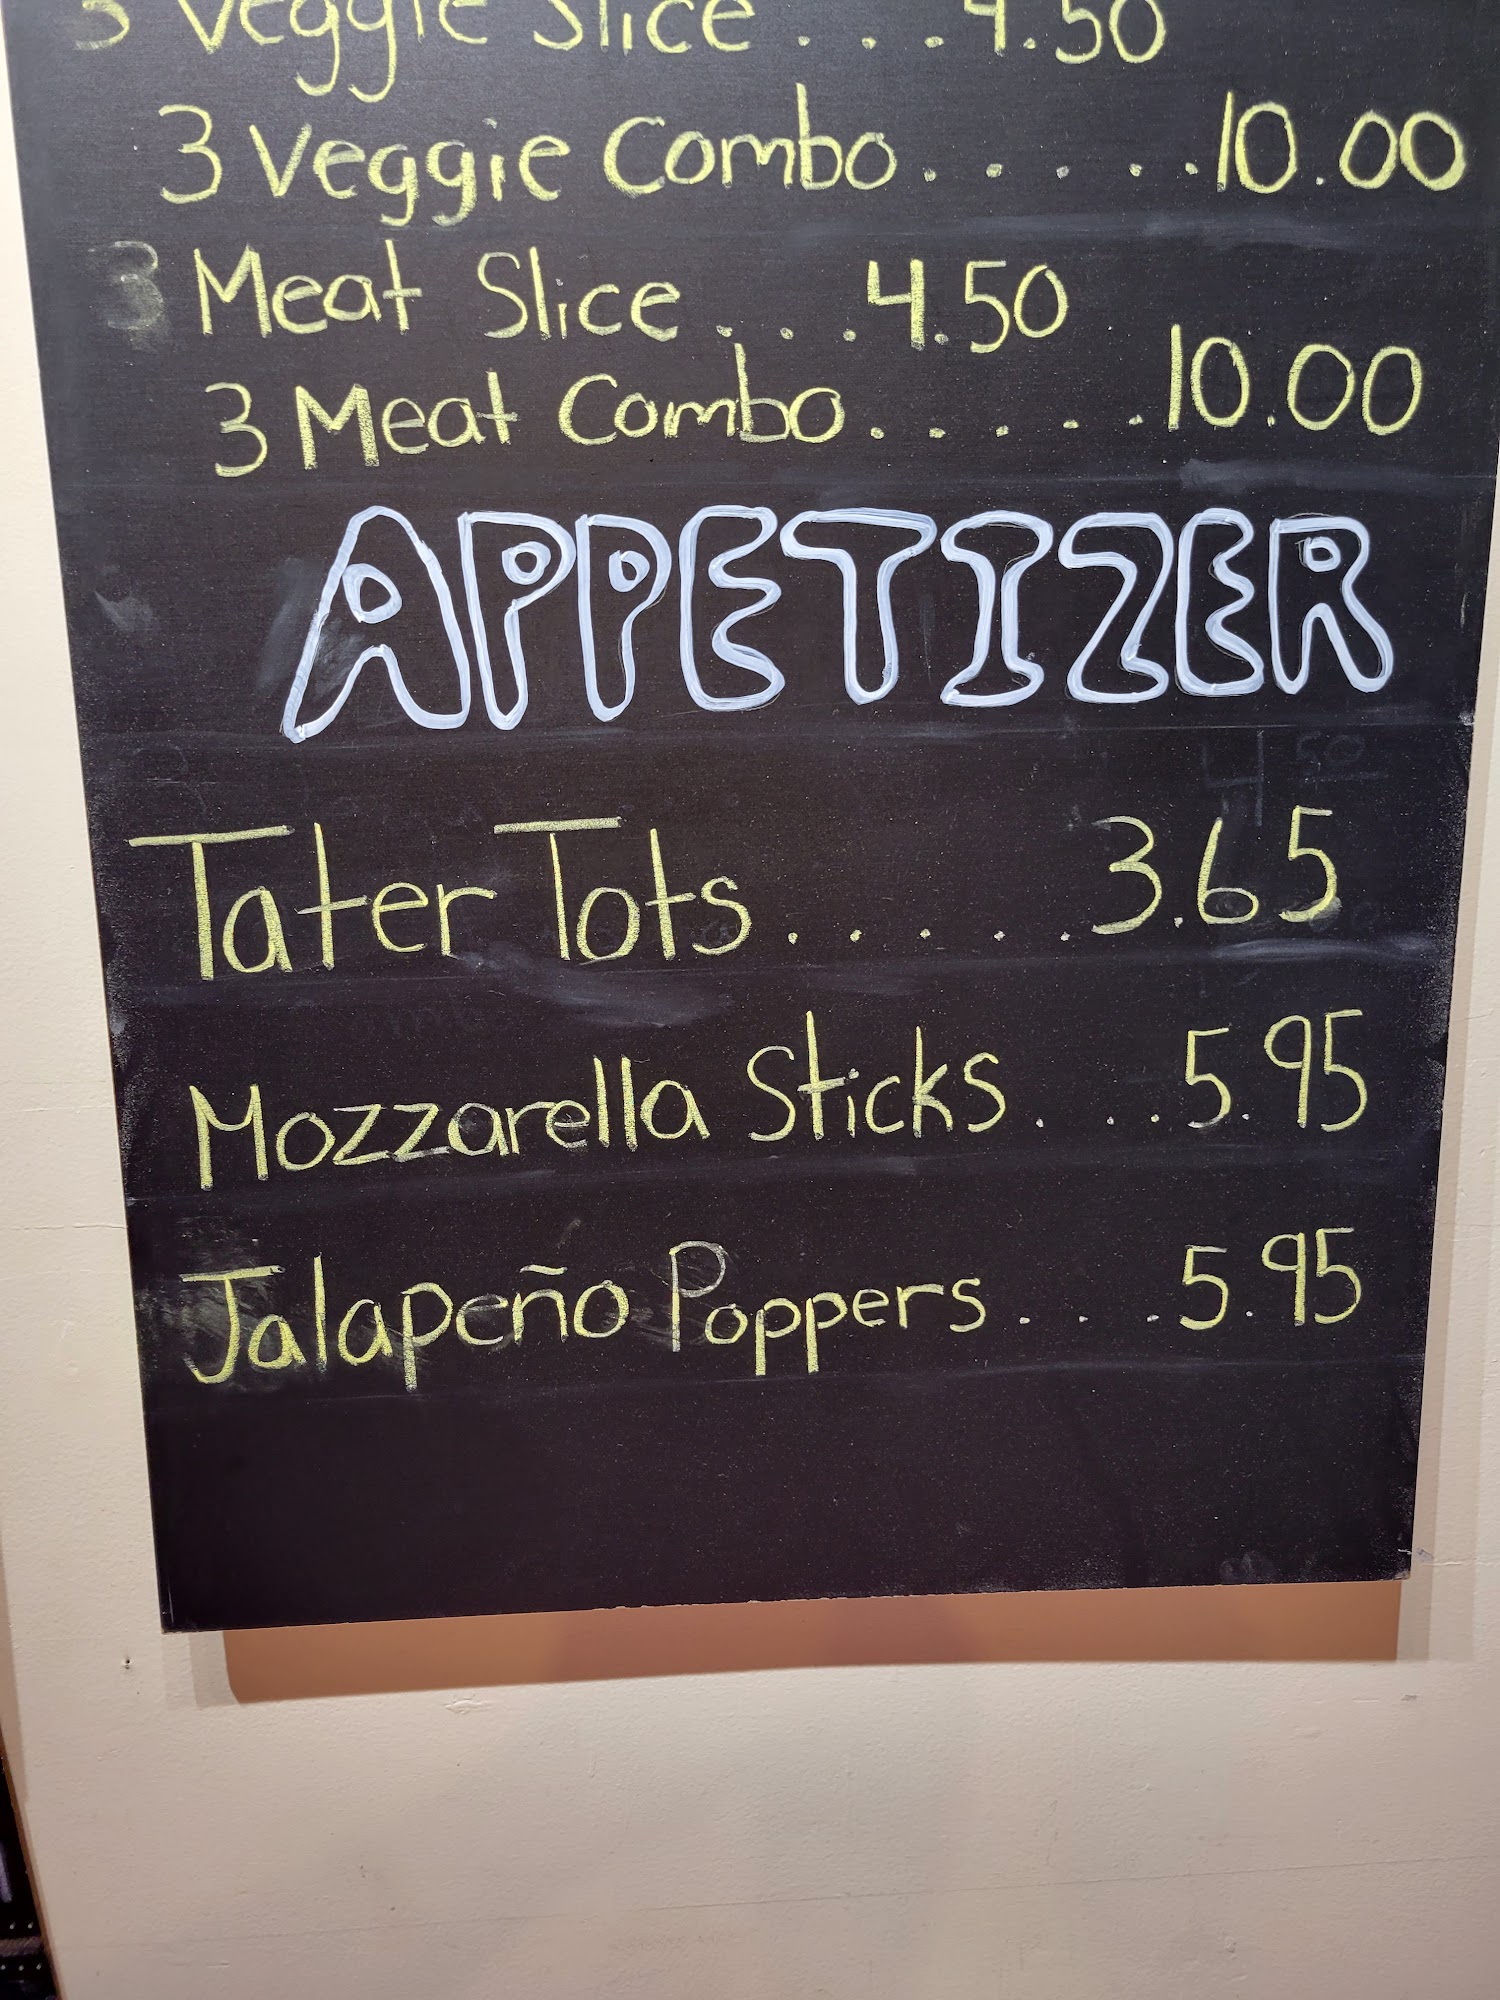 3 Veggie Slice . . . 4.50
3 Veggie Combo . . . . . 10.00
3 Meat Slice . . . 4.50
3 Meat Combo . . . . . 10.00
APPETIZER
Tater Tots . . . . . 3.65
Mozzarella Sticks . . . 5.95
Jalapeño Poppers . . . 5.95